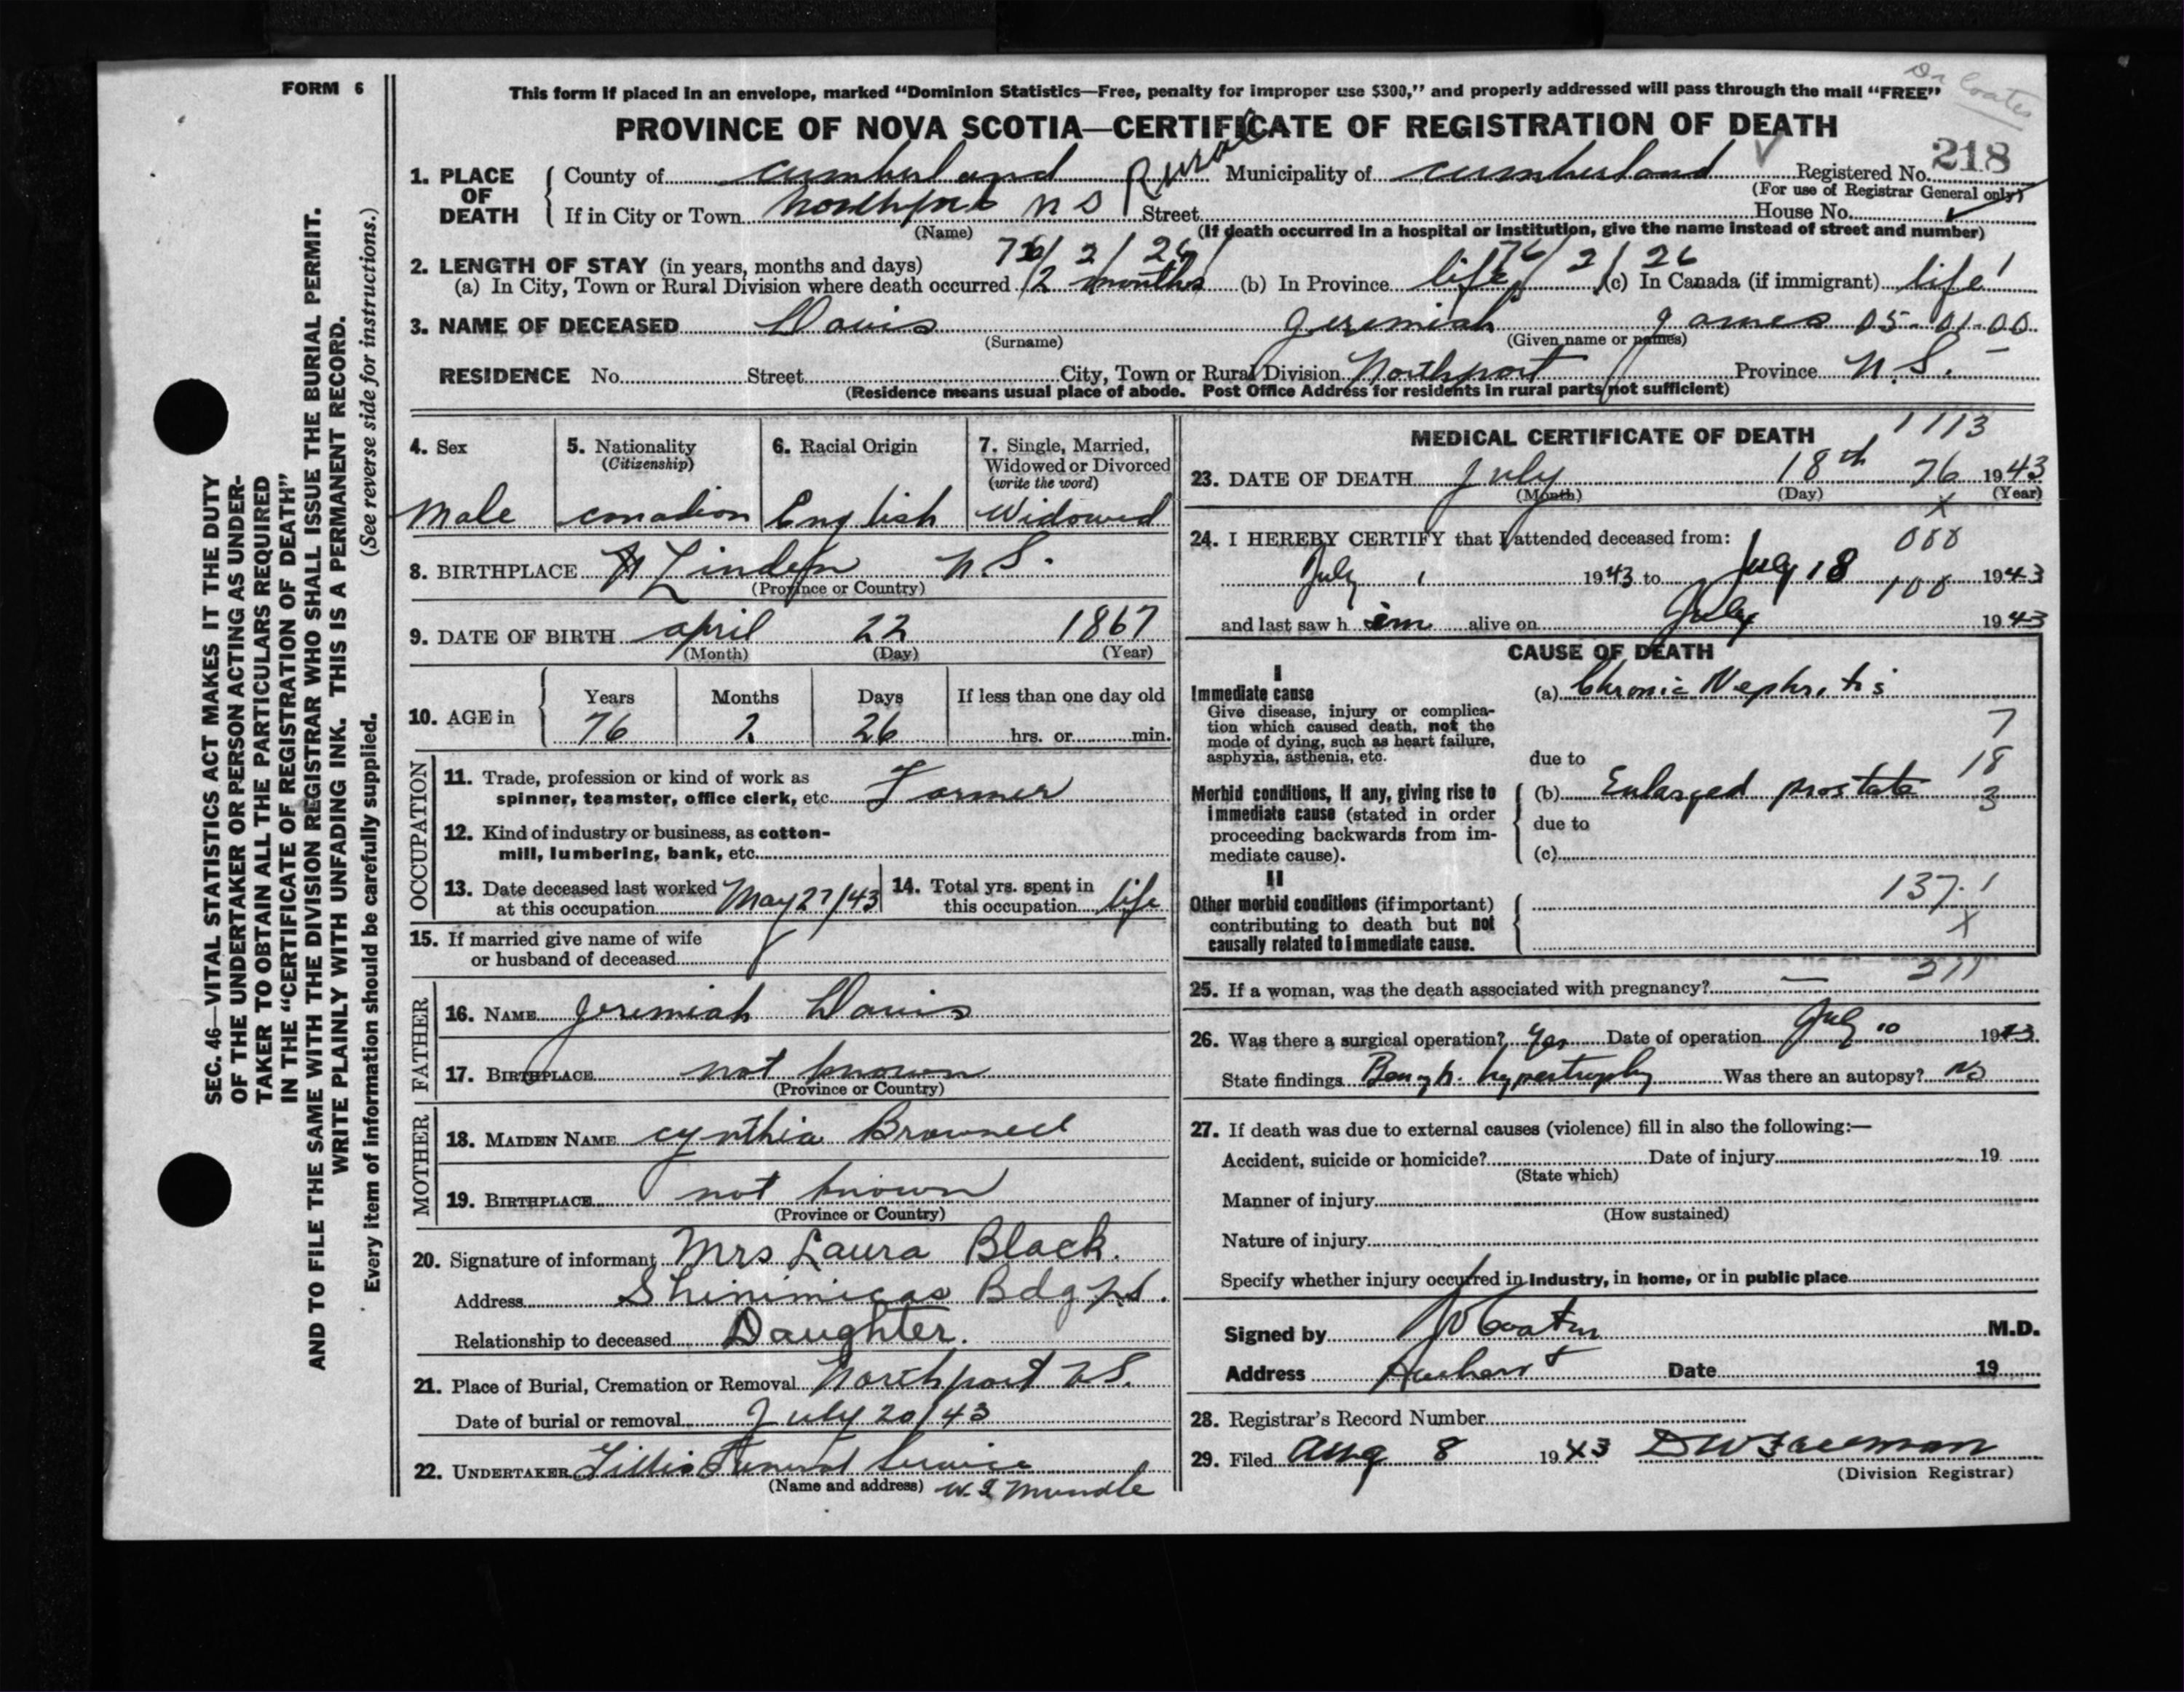 FORM 6
This form if placed in an envelope, marked “Dominion Statistics—Free, penalty for improper use $300,” and properly addressed will pass through the mail “FREE”
Dr Coates
PROVINCE OF NOVA SCOTIA—CERTIFICATE OF REGISTRATION OF DEATH
218
1. PLACE OF DEATH
County of cumberland Rural Municipality of cumberland Registered No.
(For use of Registrar General only)
If in City or Town Northport N S Street House No.
(Name) (If death occurred in a hospital or institution, give the name instead of street and number)
2. LENGTH OF STAY (in years, months and days) 76/2/26/ 76/2/26
(a) In City, Town or Rural Division where death occurred 2 months (b) In Province life (c) In Canada (if immigrant) life
3. NAME OF DECEASED Davis Jeremiah James 05-01-00
(Surname) (Given name or names)
RESIDENCE No. Street City, Town or Rural Division Northport Province N.S.
(Residence means usual place of abode. Post Office Address for residents in rural parts not sufficient)
4. Sex
Male
5. Nationality
(Citizenship)
canadian
6. Racial Origin
English
7. Single, Married,
Widowed or Divorced
(write the word)
Widowed
8. BIRTHPLACE Linden N.S.
(Province or Country)
9. DATE OF BIRTH april 22 1867
(Month) (Day) (Year)
10. AGE in
Years Months Days If less than one day old
76 2 26 hrs. or min.
OCCUPATION
11. Trade, profession or kind of work as
spinner, teamster, office clerk, etc. Farmer
12. Kind of industry or business, as cotton-
mill, lumbering, bank, etc.
13. Date deceased last worked
at this occupation May 27/43
14. Total yrs. spent in
this occupation life
15. If married give name of wife
or husband of deceased
FATHER
16. NAME Jeremiah Davis
17. BIRTHPLACE not known
(Province or Country)
MOTHER
18. MAIDEN NAME cynthia Brownell
19. BIRTHPLACE not known
(Province or Country)
20. Signature of informant Mrs Laura Black.
Address Shinimicas Bdg N.S.
Relationship to deceased Daughter.
21. Place of Burial, Cremation or Removal Northport N S.
Date of burial or removal July 20/43
22. UNDERTAKER Funeral Service
(Name and address) W. Mundle
MEDICAL CERTIFICATE OF DEATH 1113
23. DATE OF DEATH July 18th 76 1943
(Month) (Day) (Year)
x
24. I HEREBY CERTIFY that I attended deceased from: 000
July 1 1943 to July 18 1943
100
and last saw h im alive on July 1943
CAUSE OF DEATH
I
Immediate cause
Give disease, injury or complica-
tion which caused death, not the
mode of dying, such as heart failure,
asphyxia, asthenia, etc.
(a) Chronic Nephritis
7
due to
18
Morbid conditions, if any, giving rise to
immediate cause (stated in order
proceeding backwards from im-
mediate cause).
(b) Enlarged prostate 3
due to
(c)
II
Other morbid conditions (if important)
contributing to death but not
causally related to immediate cause.
137.1
X
211
25. If a woman, was the death associated with pregnancy? —
26. Was there a surgical operation? Yes Date of operation July 10 1943
State findings Benign hypertrophy Was there an autopsy? No
27. If death was due to external causes (violence) fill in also the following:—
Accident, suicide or homicide? Date of injury 19
(State which)
Manner of injury
(How sustained)
Nature of injury
Specify whether injury occurred in industry, in home, or in public place
Signed by Coates M.D.
Address Amherst Date 19
28. Registrar's Record Number
29. Filed Aug 8 1943 D W Freeman
(Division Registrar)
SEC. 46—VITAL STATISTICS ACT MAKES IT THE DUTY
OF THE UNDERTAKER OR PERSON ACTING AS UNDER-
TAKER TO OBTAIN ALL THE PARTICULARS REQUIRED
IN THE “CERTIFICATE OF REGISTRATION OF DEATH”
AND TO FILE THE SAME WITH THE DIVISION REGISTRAR WHO SHALL ISSUE THE BURIAL PERMIT.
WRITE PLAINLY WITH UNFADING INK. THIS IS A PERMANENT RECORD.
Every item of information should be carefully supplied. (See reverse side for instructions.)